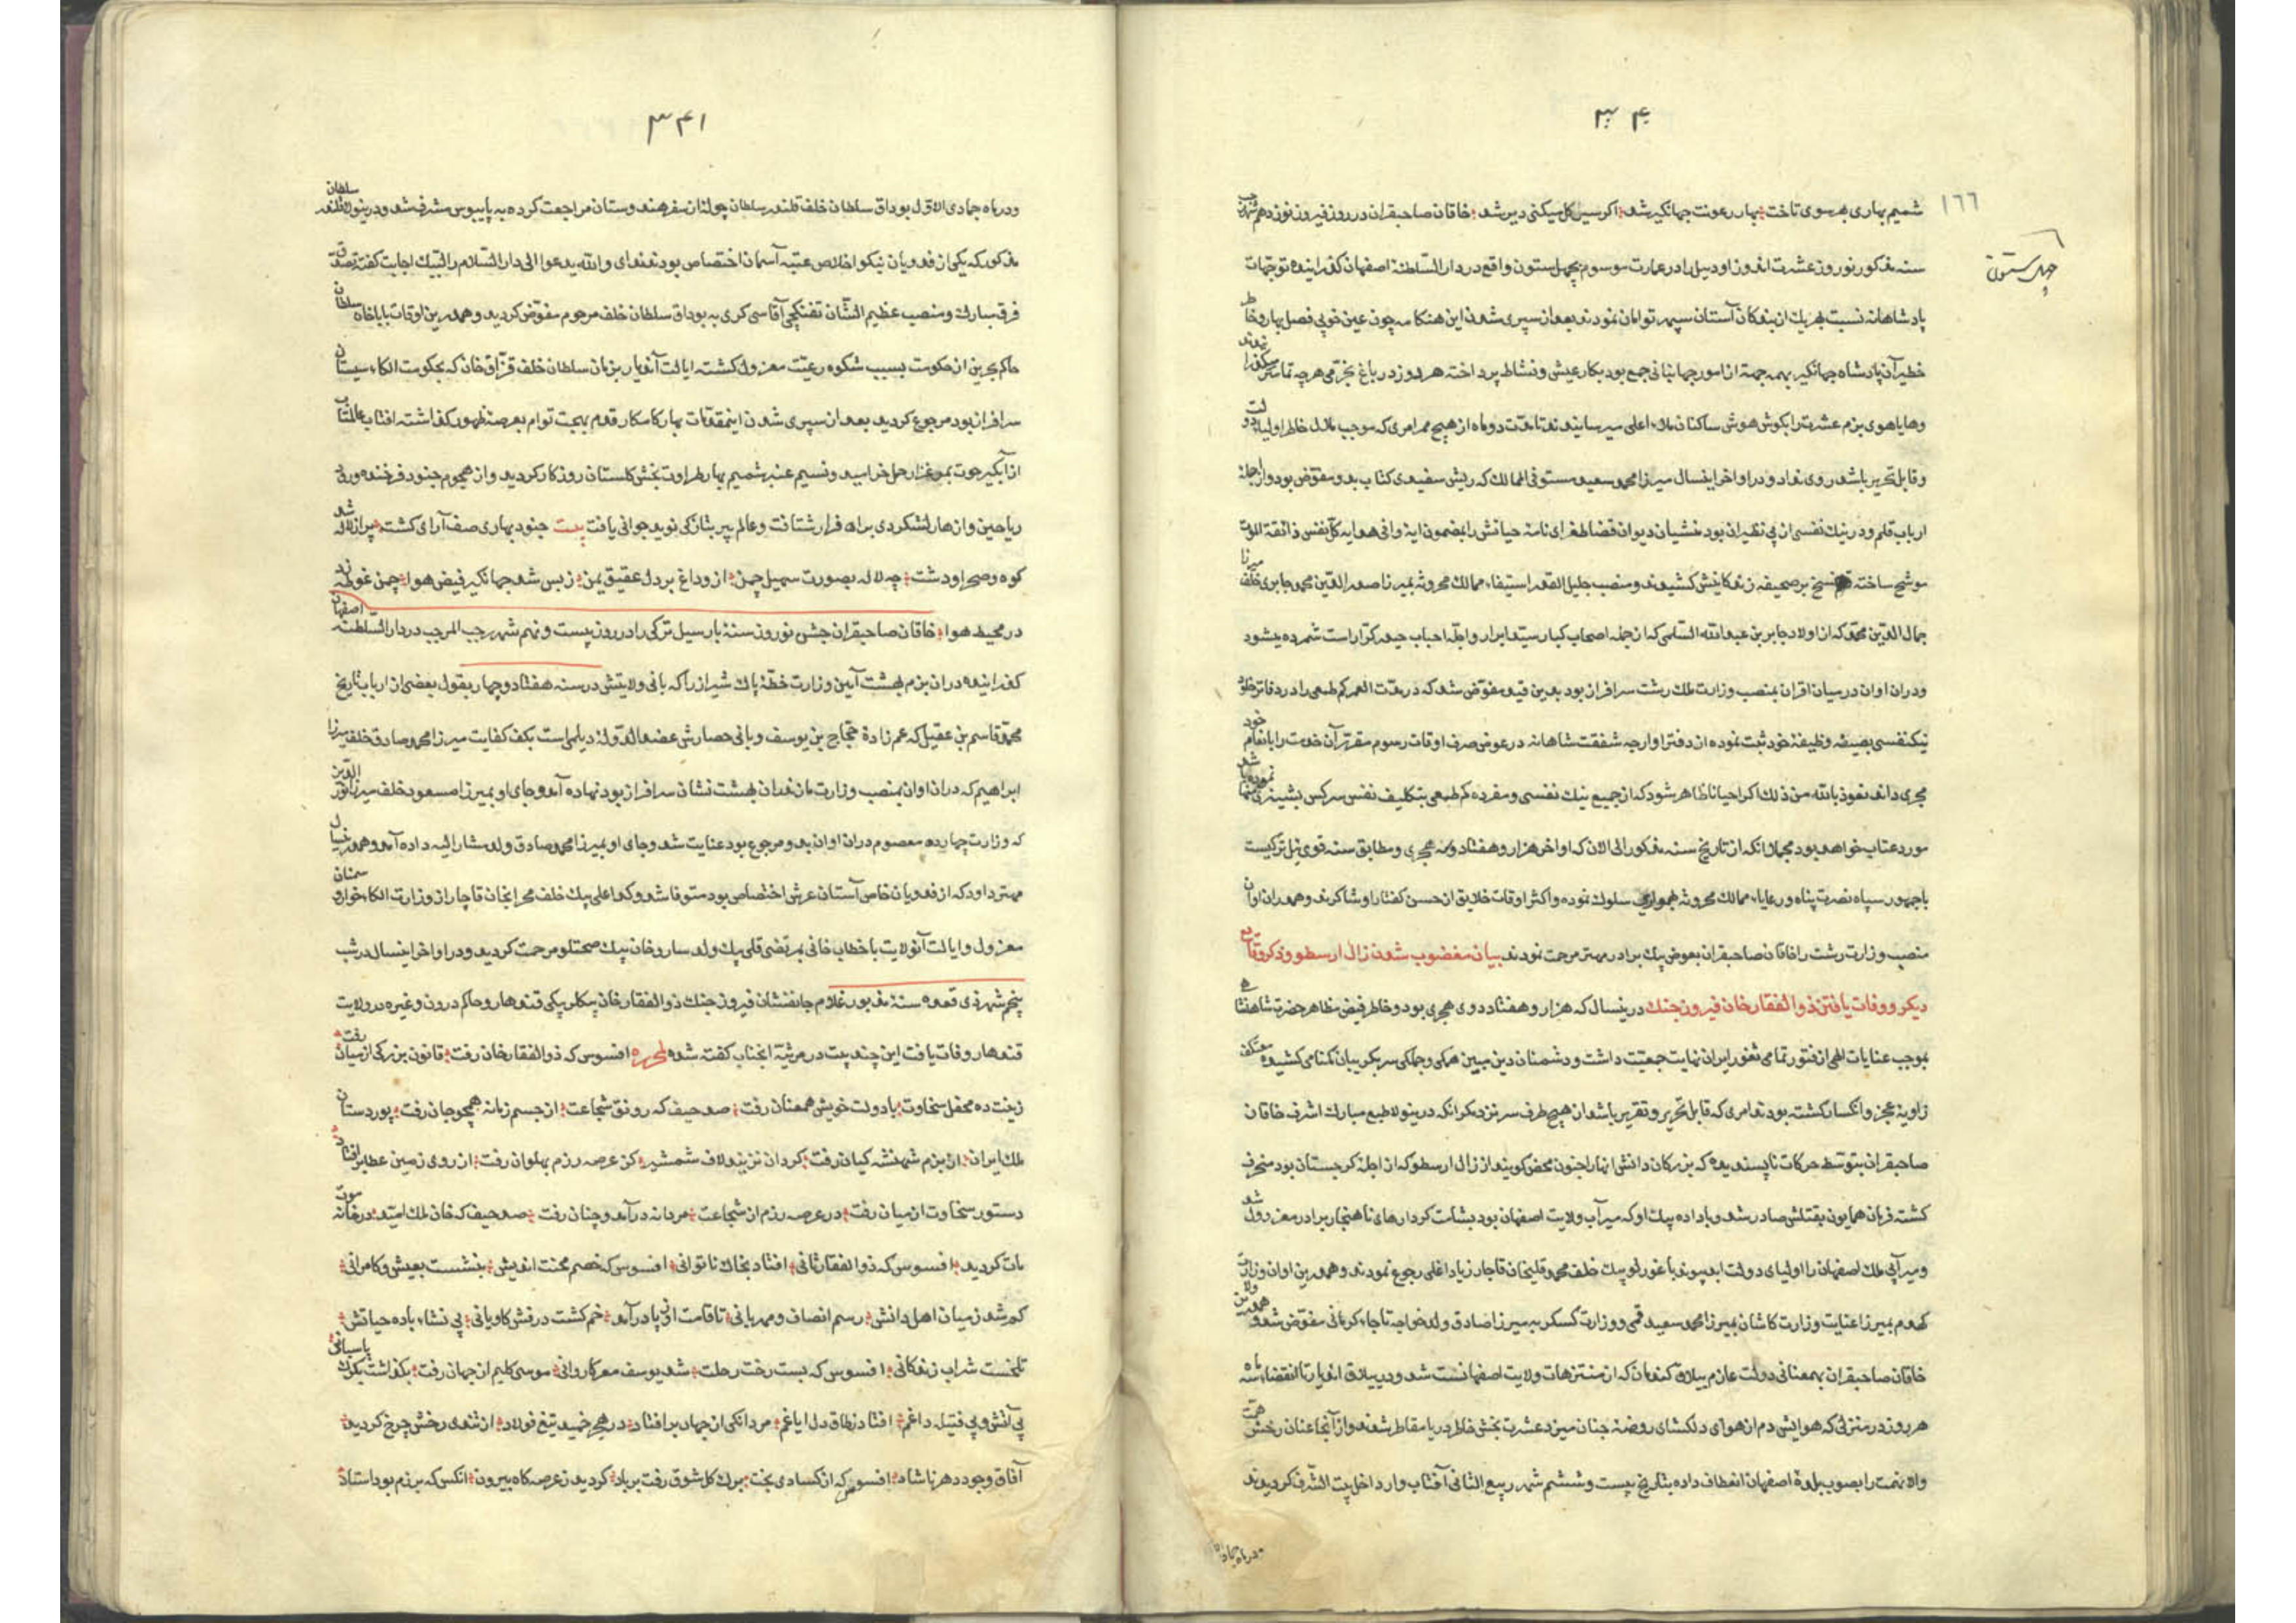 ۳۴۰
۱۶۶
شمیم بهاری بهر سوی تاخت بهار رعونت جهانکیر شد اکر سیر کل میکنی دیر شد خاقان صاحبقران در روز فیروز نوزدهم شهر
چهل ستون
سنه مذکور نوروز عشرت اندوز اودییل را در عمارت موسوم بچهل ستون واقع در دار السلطنهٔ اصفهان کذرانیده توجهات
پادشاهانه نسبت بهر یک از بندکان آستان سپهر توامان نمودند بعد از سپری شدن این هنکامه چون عین خوبی فصل بهار و خاطر
خطیر آن پادشاه جهانکیر بهمه جهة از امور جهانبانی جمع بود بکار عیش و نشاط پرداخته هر روز در باغ بخرمی هر چه تمامتر
وهایاهوی بزم عشرت را بکوش هوش ساکنان ملاء اعلی میرسانیدند تا مدت دو ماه از هیچ ممر امری که موجب ملال خاطر اولیاء دولت
و قابل تحریر باشد روی نداد و در اواخر اینسال میرزا محمد سعید مستوفی الممالک که ریش سفیدی کتاب بدو مفوض بود و از اجلهٔ
ارباب قلم و در نیک نفسی از بی نظیران بود منشیان دیوان قضا طغرای نامهٔ حیاتش را بمضمون کل نفس ذائقة الموت
موشح ساخته نسخ بر صحیفه زندکانیش کشیدند و منصب جلیل القدر استیفاء ممالک محروسه بمیرزا صدر الدین محمد جابری خلف میرزا
جمال الدین محمد که از اولاد جابر بن عبدالله انصاری که از جمله اصحاب کبار سید ابرار و اجلهٔ احباب حیدر کرار است شمرده میشود
ودران اوان در میان اقران بمنصب وزارت ملک رشت سرافراز بود بدین قید مفوض شد که در مدت العمر کم طمعی را در دفاتر خلود
نیکنفسی بصیغه وظیفهٔ خود ثبت نموده از دفتر اوارجه شفقت شاهانه در عوض صرف اوقات رسوم مقرر آن خدمت را بانعام خود
مجری داند نعوذ بالله من ذلک اکر احیانا ظاهر شود که از جمیع نیک نفسی و مفرده کم طمعی بتکلیف نفس سرکش
مورد عتاب خواهد بود مجملا آنکه از تاریخ سنه مذکور الی الان که اواخر هزار و هفتاد و نه هجری و مطابق سنه قوی ئیل ترکیست
با جمهور سپاه نصرت پناه و رعایاء ممالک محروسه بهمواری سلوک نموده و اکثر اوقات خلایق از حسن کفتار او شاکرند و همدران اوان
منصب وزارت رشت را خاقان صاحبقران بعوض بیک برادر مهتر مرحمت نمودند بیان مغضوب شدن زال ارسطو و ذکر وقایع
دیکر و وفات یافتن ذو الفقار خان فیروز جنک درینسال که هزار و هفتاد دوی هجری بود و خاطر فیض مظاهر حضرت شاهنشاهی
بموجب عنایات الهی از فتور تمامی ثغور ایران نهایت جمعیت داشت و دشمنان دین مبین همکی و جملکی سر بکریبان کمنامی کشیده معتکف
زاویهٔ عجز و انکسار کشته بودند امری که قابل تحریر و تقریر باشد از هیچ طرف سر نزد دیکر آنکه درینولا طبع مبارک اشرف خاقان
صاحبقران بتوسط حرکات ناپسندیده که بزرکان دانش انها را جنون محض کویند از زال ارسطو که از اجلهٔ کرجستان بود منحرف
کشته فرمان همایون بقتلش صادر شد و باداده بیک او که میرآب ولایت اصفهان بود بشامت کردارهای ناهنجار برادر معزول شد
و میرآبی ملک اصفهان را اولیای دولت ابد پیوند باغورلو بیک خلف محمد قلیخان قاجار زیاد اغلی رجوع نمودند و همدرین اوان وزارت
کهدم بمیرزا عنایت وزارت کاشان بمیرزا محمد سعید قمی و وزارت کسکر به میرزا صادق ولد خواجه تاجاء کرمانی مفوض شد و همدرین ولا
خاقان صاحبقران بهمعنانی دولت عازم ییلاق کندمان که از متنزهات ولایت اصفهانست شد و در ییلاق اندیار تا انقضاء سه ماه
هر روز در منزلی که هوایش دم از هوای دلکشای روضهٔ جنان میزد عشرت بخش خاطر دریا مقاطر شدند و از آنجا عنان رخش همت
والا نهمت را بصوب بلدهٔ اصفهان انعطاف داده بتاریخ بیست و ششم شهر ربیع الثانی آفتاب وار داخل بیت الشرف کردیدند
ودرماه جمادی
۳۴۱
ودر ماه جمادی الاول بوداق سلطان خلف قلندر سلطان چوله از سفر هندوستان مراجعت کرده به پایبوس مشرف شد و درینولا قلندر سلطان
مذکور که یکی از فدویان نیکو اخلاص عتبه آسمان اختصاص بود ندای والله یدعوا الی دار السلام را لبیک اجابت کفته تصدق
فرق مبارک و منصب عظیم الشان تفنکچی آقاسی کری به بوداق سلطان خلف مرحوم مفوض کردید و همدرین اوقات بابا خان سلطان
حاکم بحرین از حکومت بسبب شکوه رعیت معزول کشته ایالت آندیار بزمان سلطان خلف قزاق خان که بحکومت الکاء سیستان
سرافراز بود مرجوع کردید بعد از سپری شدن اینمقدمات بهار کامکار قدم بهجت توام بعرصه ظهور کذاشته افتاب عالمتاب
از آبکیر حوت بمرغزار حمل خرامید و نسیم عنبر شمیم بهار طراوت بخش کلستان روزکار کردید و از هجوم جنود فرخنده ورود
ریاحین و ازهار لشکر دی براه فرار شتافت و عالم پیر بتازکی نوید جوانی یافت بیت جنود بهاری صف آرای کشت پر از لاله شد
کوه وصحرا ودشت چه لاله بصورت سهیل چمن از و داغ بر دل عقیق یمن ز بس شد جهانکیر فیض هوا چمن غوطه زد
در محیط هوا خاقان صاحبقران جشن نوروز سنهٔ بارسیل ترکی را در روز بیست و نهم شهر رجب المرجب در دار السلطنه اصفهان
کذرانیده دران بزم بهشت آیین وزارت خطهٔ پاک شیراز را که بانی ولایتش در سنه هفتاد و چهار بقول بعضی از ارباب تاریخ
محمد قاسم بن عقیل که عم زادهٔ حجاج بن یوسف و بانی حصارش عضد الدولهٔ دیلمی است بکف کفایت میرزا محمد صادق خلف میرزا
ابراهیم که دران اوان بمنصب وزارت مازندران بهشت نشان سرافراز بود نهاده آمد و جای او بمیرزا مسعود خلف میرزا نور الدین
که وزارت چهارده معصوم دران اوان بدو مرجوع بود عنایت شد و جای او بمیرزا محمد صادق ولد مشار الیه داده آمد و همدرینسال
مهتر داود که از فدویان خاص آستان عرش اختصاص بود متوفا شد و کدا علی بیک خلف محراب خان قاجار از وزارت الکاء خوار و سمنان
معزول و ایالت آنولایت با خطاب خانی بمرتضی قلی بیک ولد ساروخان بیک مرحمت کردید و در اواخر اینسال در شب
پنجم شهر ذی قعده سنهٔ مذبور غلام جانفشان فیروز جنک ذو الفقار خان بیکلربیکی قندهار و حاکم درون و غیره در ولایت
قندهار وفات یافت این چند بیت در مرثیهٔ انجناب کفته شده لمحرره افسوس که ذو الفقار خان رفت قانون بزرکی از میان رفت
زینت ده محفل سخاوت با دولت خویش همعنان رفت صد حیف که رونق شجاعت از جسم زمانه همچو جان رفت پور دستان
ملک ایران از بزم شهنشه کیان رفت کردان نزنند لاف شمشیر کز عرصه رزم پهلوان رفت از روی زمین عطا بر افتاد
دستور سخاوت از میان رفت در عرصه رزم از شجاعت مردانه درآمد و چنان رفت صد حیف که خان ملک امید در خانه موت
مات کردید افسوس که ذو الفقار ثانی افتاد بخاک ناتوانی افسوس که خصم محنت اندیش بنشست بعیش و کامرانی
کم شد ز میان اهل دانش رسم انصاف و مهربانی تا قامت او ز پا درآمد خم کشت درفش کاویانی بی نشاء باده حیاتش
تلخست شراب زندکانی افسوس که بست رخت رحلت شد یوسف مصر کاروانی موسی کلیم از جهان رفت بکذاشت بکرک پاسبانی
بی آتش و بی فتیله داغم افتاد ز طاق دل ایاغم مردانکی از جهان بر افتاد در هم خمید تیغ فولاد از تندی رخش چرخ کردید
آفاق وجود دهر ناشاد افسوس که از کسادی بخت برک کل شوق رفت بر باد کردید ز عرصه کاه بیرون انکس که برزم بود استاد